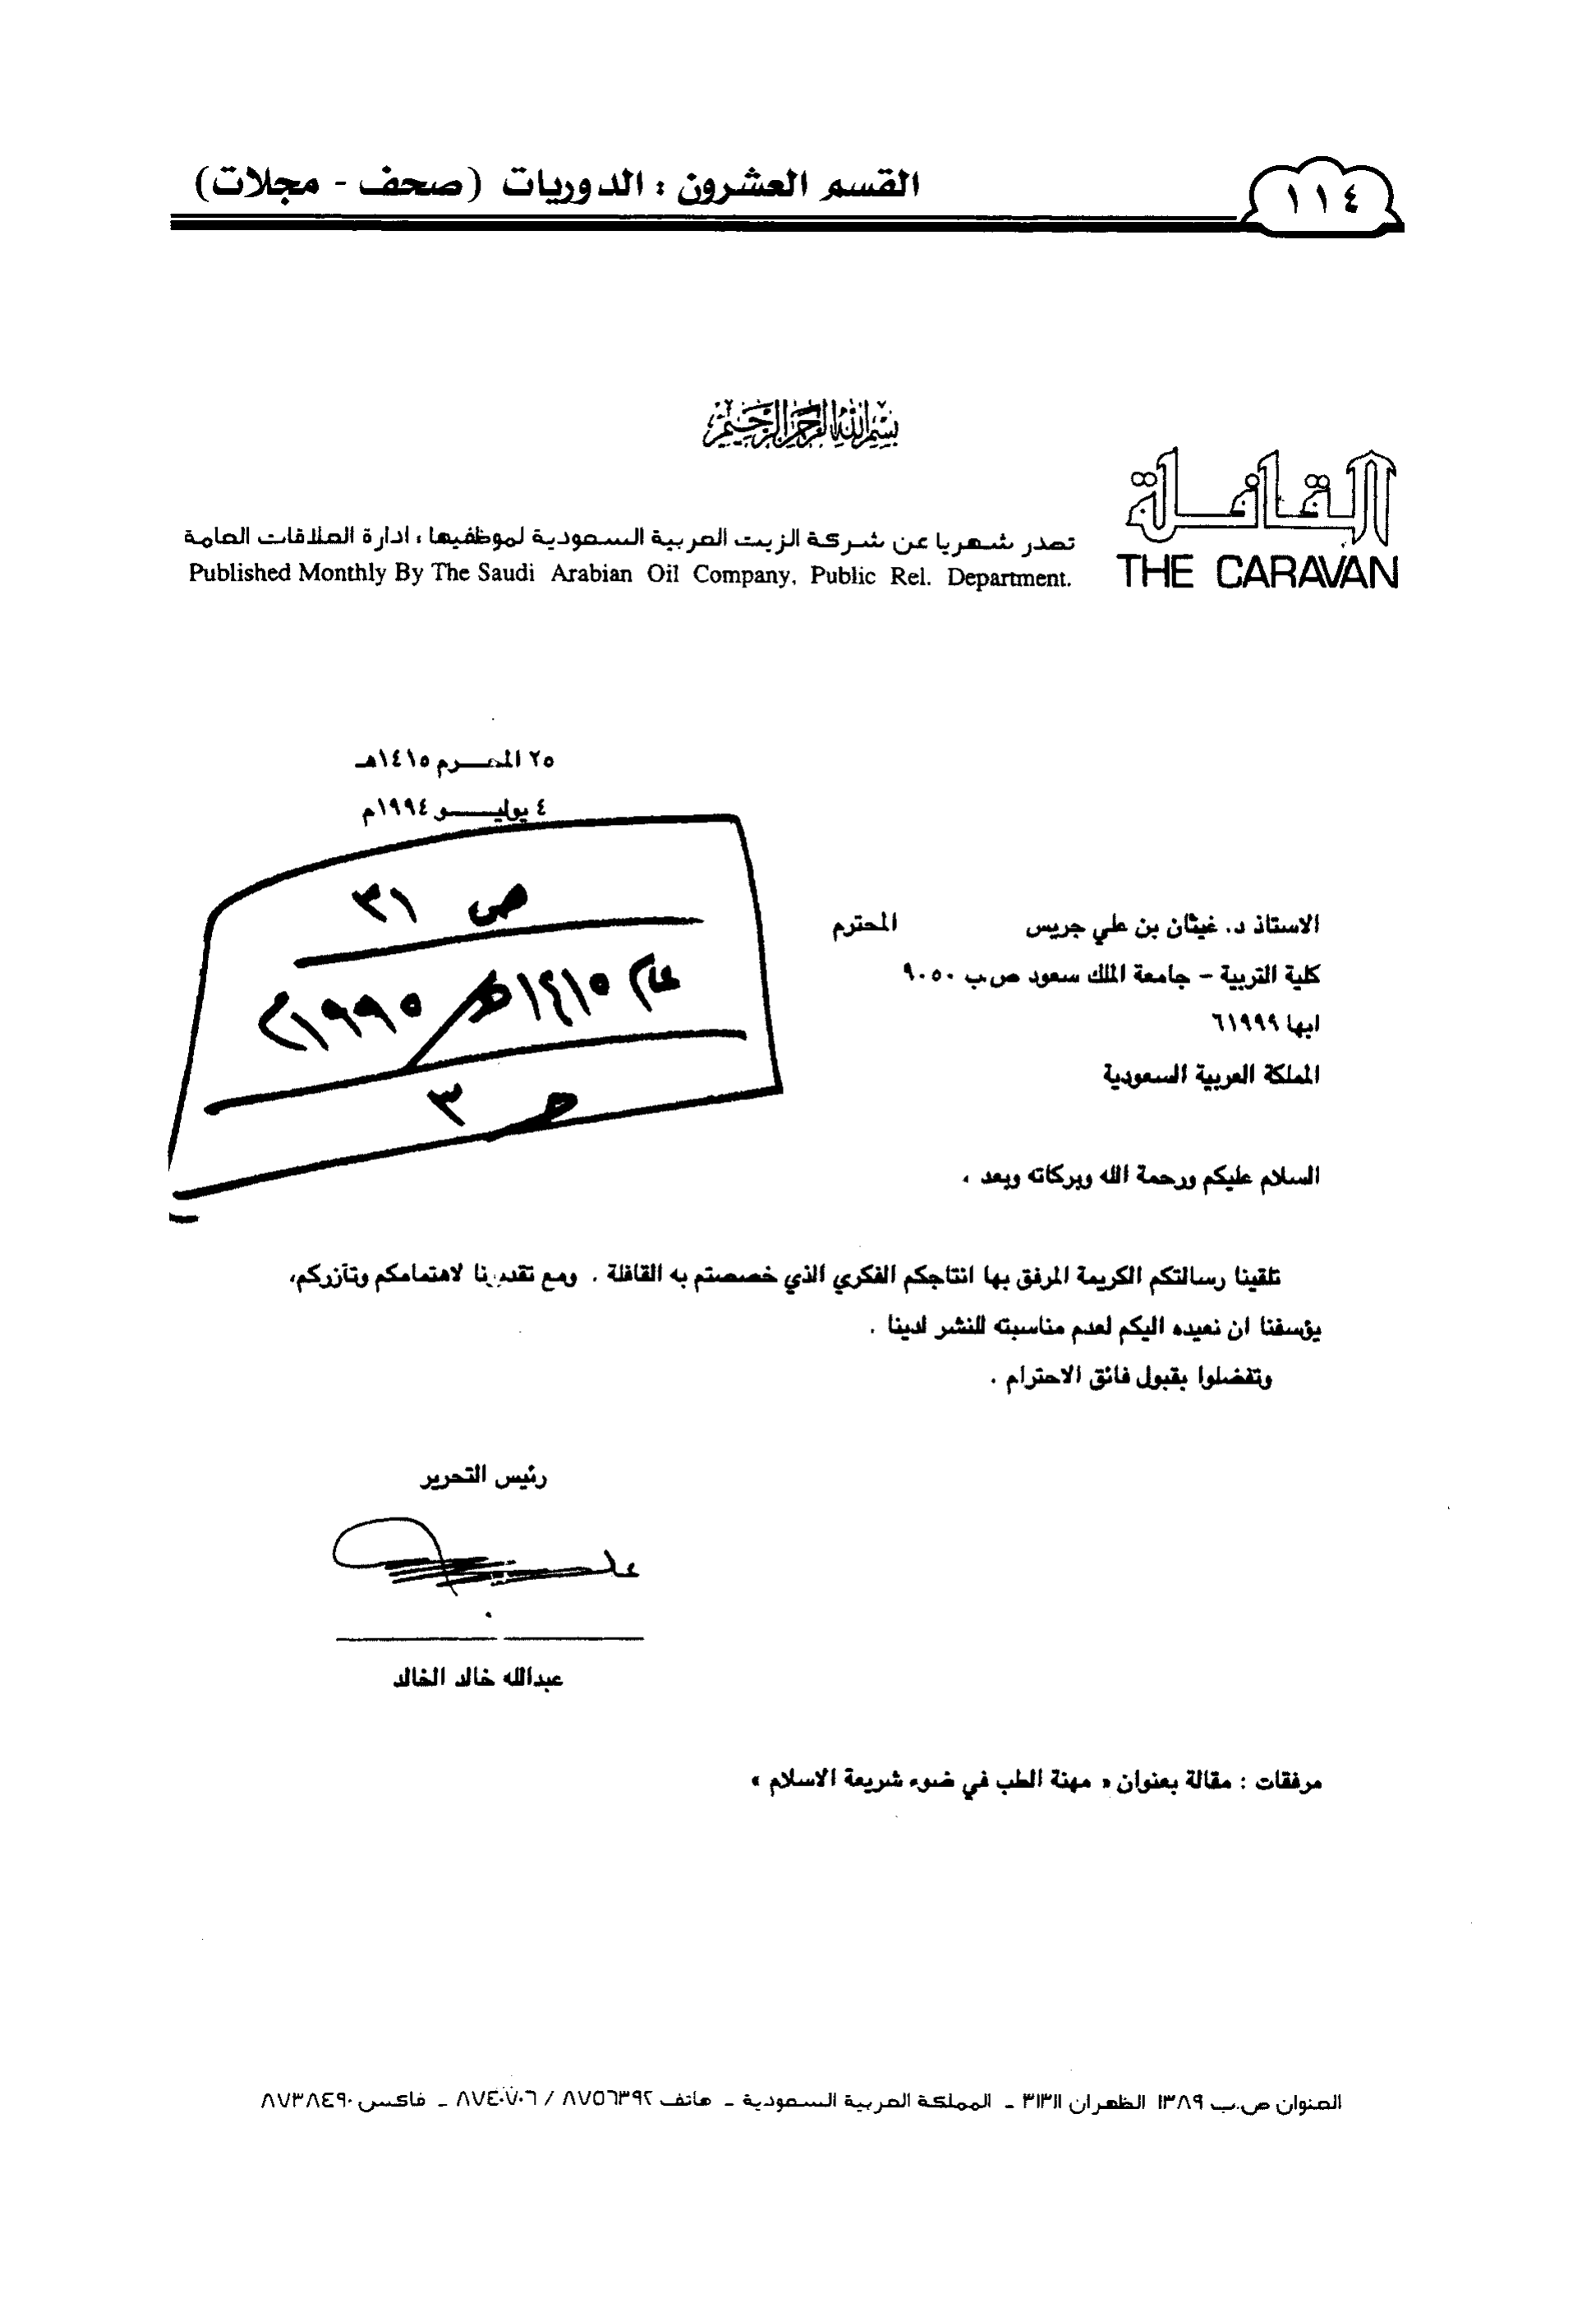 القسم العشرون : الدوريات (صحف - مجلات)
١١٤
بسم الله الرحمن الرحيم
القافلة
THE CARAVAN
تصدر شهريا عن شركة الزيت العربية السعودية لموظفيها ، ادارة العلاقات العامة
Published Monthly By The Saudi Arabian Oil Company, Public Rel. Department.
٢٥ المحـــرم ١٤١٥هـ
٤ يوليـــــو ١٩٩٤م
ص ٣١
عام ١٤١٥هـ/١٩٩٥م
حـ ٣
الاستاذ د. غيثان بن علي جريس المحترم
كلية التربية - جامعة الملك سعود ص.ب ٩٠٥٠
ابها ٦١٩٩٩
المملكة العربية السعودية
السلام عليكم ورحمة الله وبركاته وبعد ،
تلقينا رسالتكم الكريمة المرفق بها انتاجكم الفكري الذي خصصتم به القافلة . ومع تقديرنا لاهتمامكم وتآزركم،
يؤسفنا ان نعيده اليكم لعدم مناسبته للنشر لدينا .
وتفضلوا بقبول فائق الاحترام .
رئيس التحرير
عبدالله خالد الخالد
مرفقات : مقالة بعنوان « مهنة الطب في ضوء شريعة الاسلام »
العنوان ص.ب ١٣٨٩ الظهران ٣١٣١١ ـ المملكة العربية السعودية ـ هاتف ٨٧٥٦٣٩٢ / ٨٧٤٠٧٠٦ ـ فاكس ٨٧٣٨٤٩٠